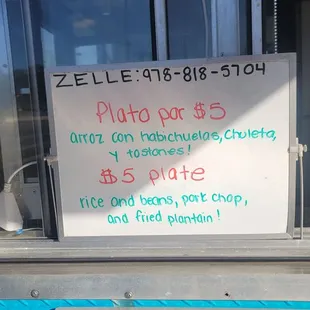 ZELLE: 978-818-5704
Plato por $5
arroz con habichuelas, chuleta,
y tostones!
$5 plate
rice and beans, pork chop,
and fried plantain!